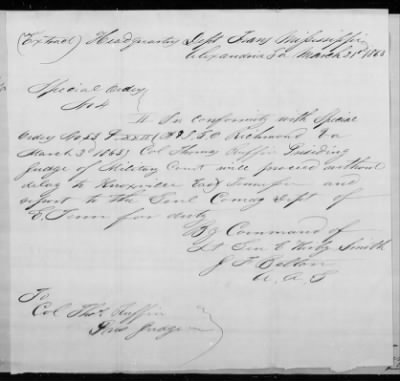 (Extract) Headquarters Dept Trans Mississippi
Alexandria La March 31st 1863
Special Order
No 4
II In conformity with Special
Order No 53 A & I G O Richmond Va
March 3d 1863 Col Thomas Ruffin Presiding
Judge of Military Court will proceed without
delay to Knoxville East Tennessee and
report to the Genl Comdg Dept of
E. Tenn for duty
By Command of
Lt Gen E Kirby Smith
J F Belton
A. A. G
To
Col Thos Ruffin
Pres Judge